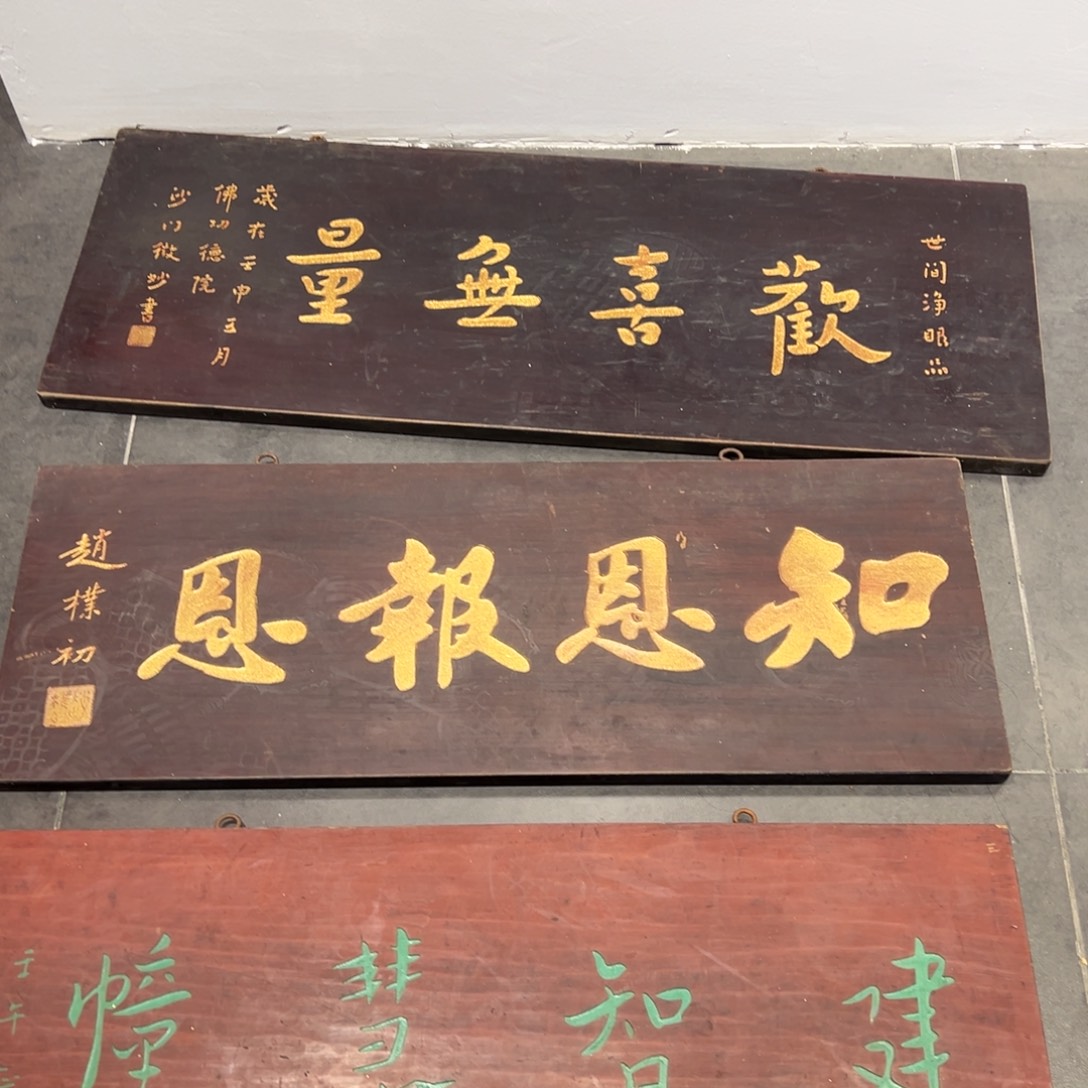 世间淨眼品
歡喜無量
歲在壬申五月
佛功德院
沙门微妙書
知恩報恩
趙樸初
建智慧幢
壬午